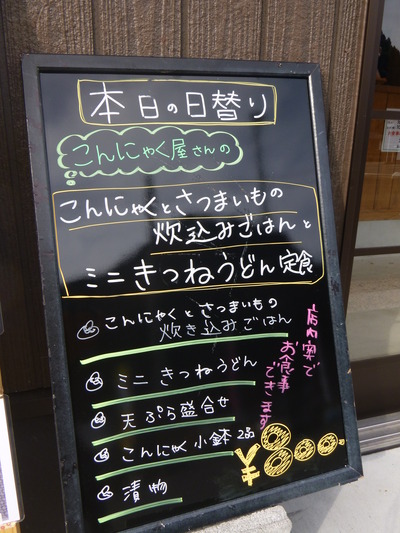 本日の日替り
こんにゃく屋さんの
こんにゃくとさつまいもの
炊込みごはんと
ミニきつねうどん定食
こんにゃくとさつまいもの
炊き込みごはん
ミニきつねうどん
天ぷら盛合せ
こんにゃく小鉢2品
漬物
店内奥で
お食事
できます
¥800